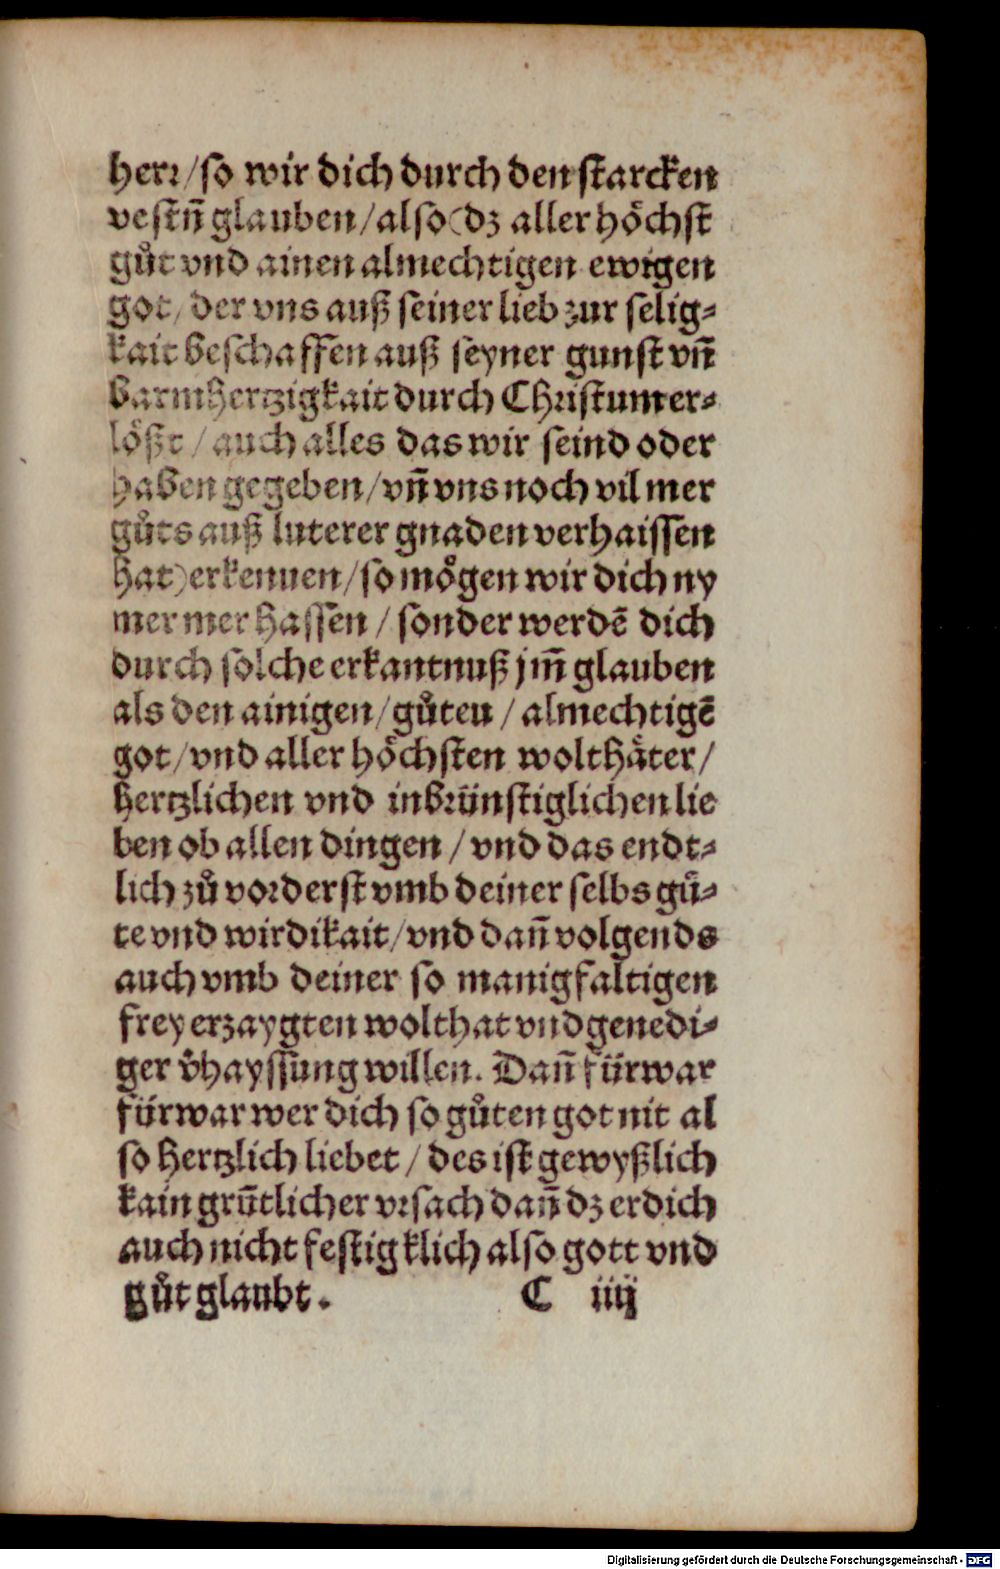 herr/so wir dich durch den starcken
vestn̄ glauben/also(dz aller hoͤchst
guͦt vnd ainen almechtigen ewigen
got/der vns auß seiner lieb zur selig⸗
kait beschaffen auß seyner gunst vn̄
barmhertzigkait durch Christum er⸗
loͤßt/auch alles das wir seind oder
haben gegeben/vn̄ vns noch vil mer
guͦts auß luterer gnaden verhaissen
hat)erkennen/so moͤgen wir dich ny
mer mer hassen/sonder werdē dich
durch solche erkantnuß jm̄ glauben
als den ainigen/guͦten/almechtigē
got/vnd aller hoͤchsten wolthaͤter/
hertzlichen vnd inbrünstiglichen lie
ben ob allen dingen/vnd das endt⸗
lich zuͦ vorderst vmb deiner selbs guͤ⸗
te vnd wirdikait/vnd dan̄ volgends
auch vmb deiner so manigfaltigen
frey erzaygten wolthat vnd genedi⸗
ger v̉hayssung willen. Dan̄ fürwar
fürwar wer dich so guͦten got nit al
so hertzlich liebet/des ist gewyßlich
kain grūtlicher vrsach dan̄ dz er dich
auch nicht festigklich also gott vnd
guͦt glaubt. C iiij
Digitalisierung gefördert durch die Deutsche Forschungsgemeinschaft - DFG